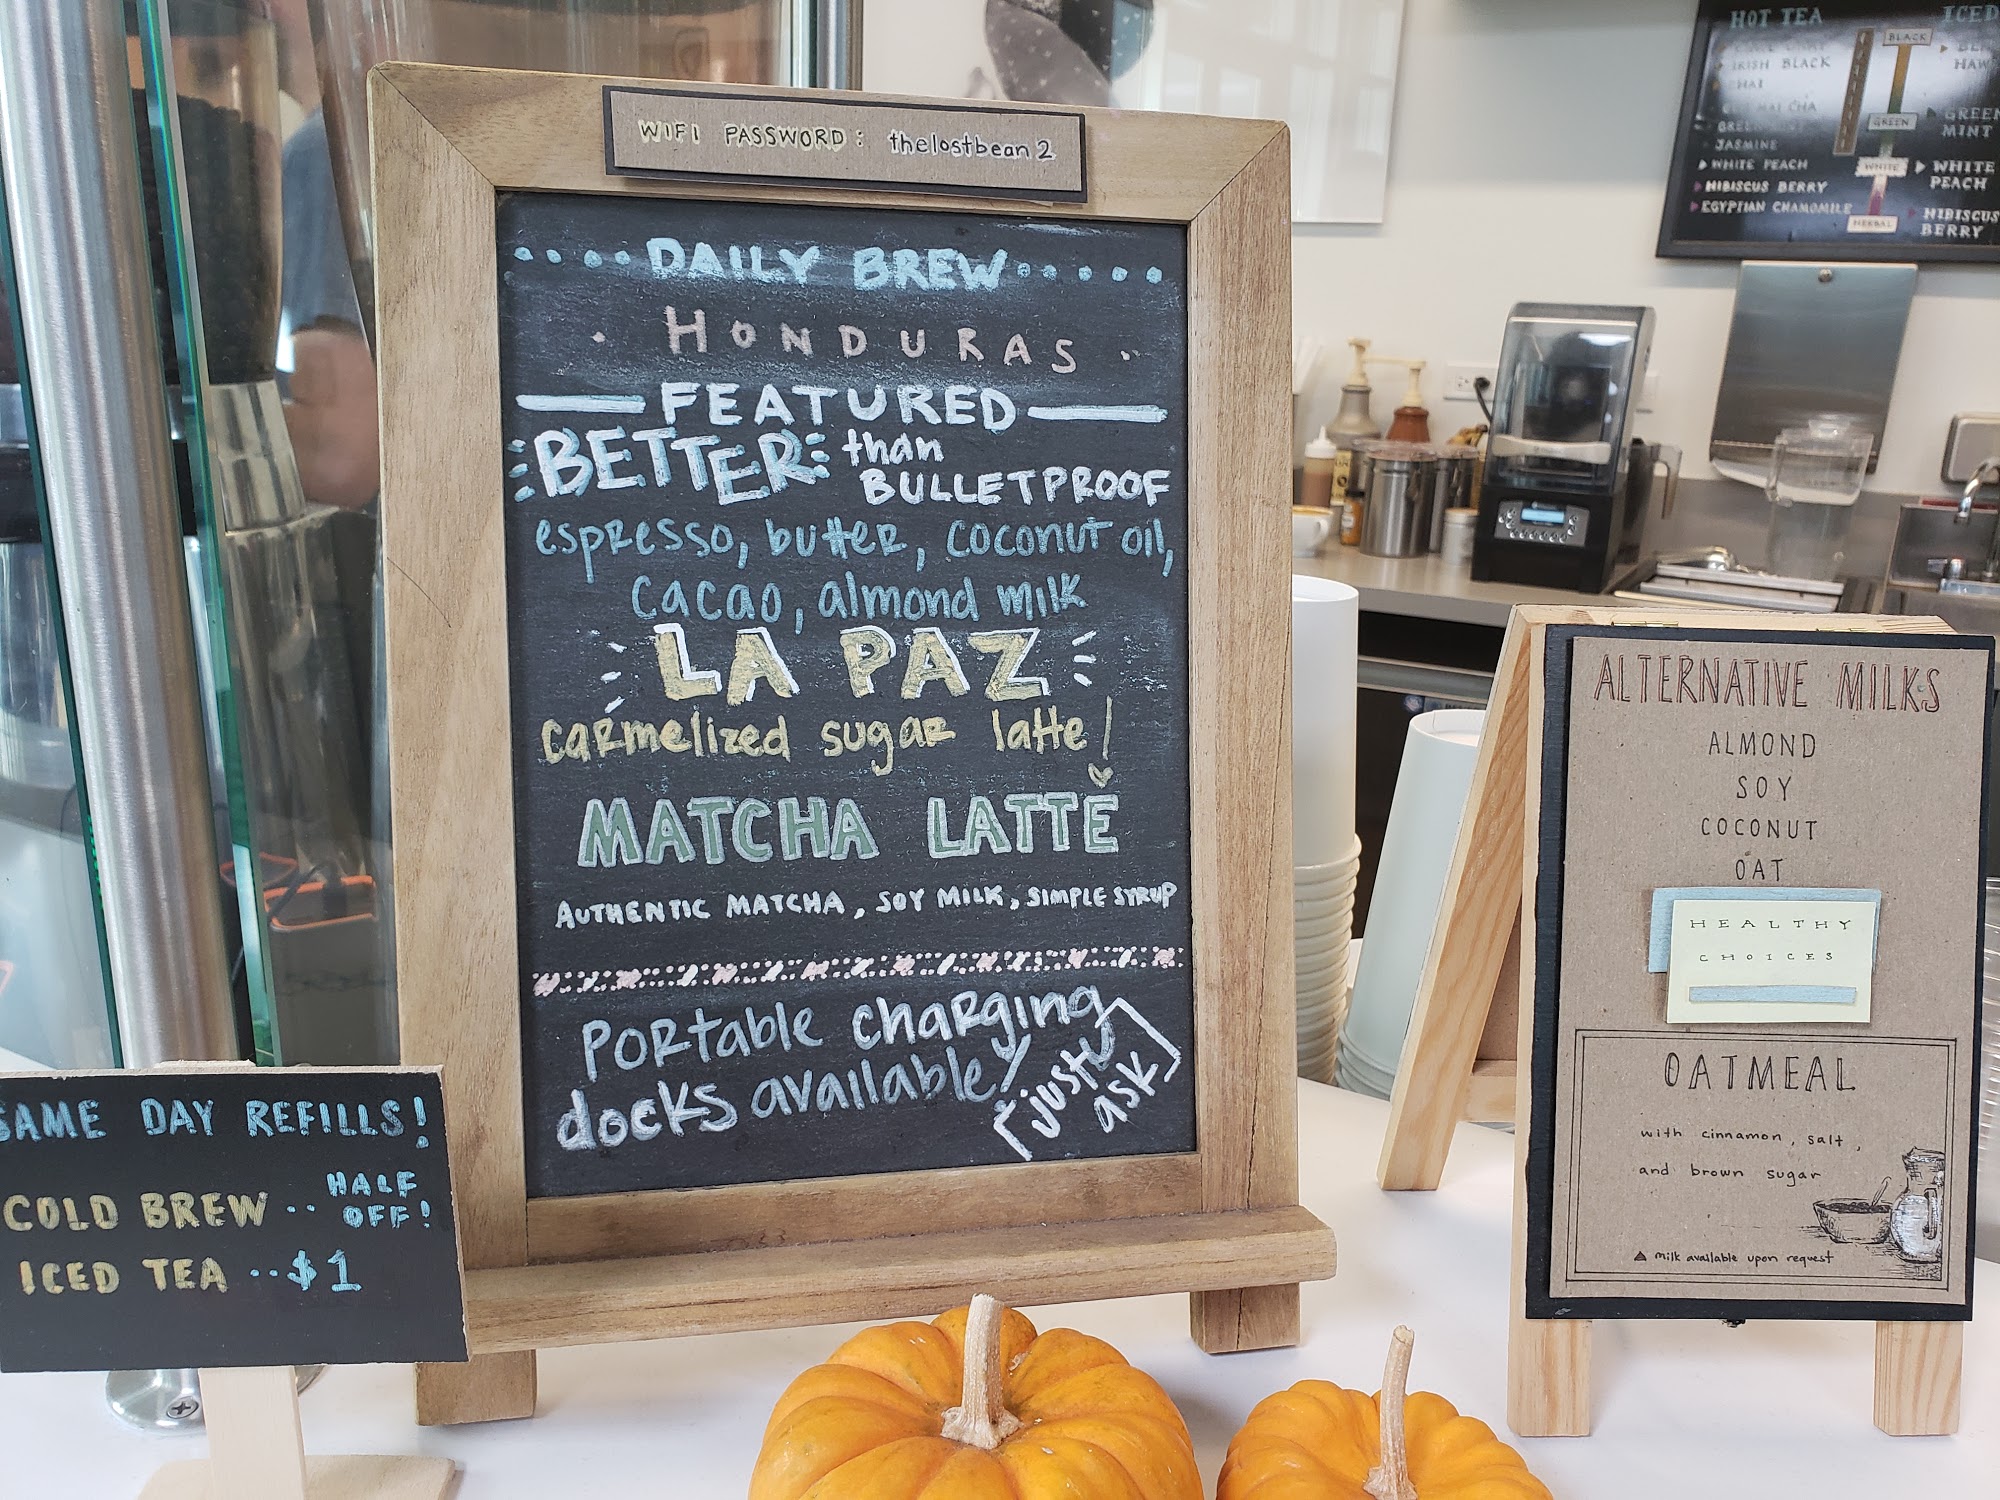 WIFI PASSWORD: thelostbean2
DAILY BREW
HONDURAS
FEATURED
BETTER than
BULLETPROOF
espresso, butter, coconut oil,
cacao, almond milk
LA PAZ
carmelized sugar latte!
MATCHA LATTE
AUTHENTIC MATCHA, SOY MILK, SIMPLE SYRUP
portable charging
docks available!
just
ask
SAME DAY REFILLS!
COLD BREW ·· HALF
OFF!
ICED TEA ·· $1
ALTERNATIVE MILKS
ALMOND
SOY
COCONUT
OAT
HEALTHY
CHOICES
OATMEAL
with cinnamon, salt,
and brown sugar
milk available upon request
HOT TEA
IRISH BLACK
CHAI
JASMINE
WHITE PEACH
HIBISCUS BERRY
EGYPTIAN CHAMOMILE
BLACK
GREEN
WHITE
HERBAL
ICED
GREEN
MINT
WHITE
PEACH
HIBISCUS
BERRY